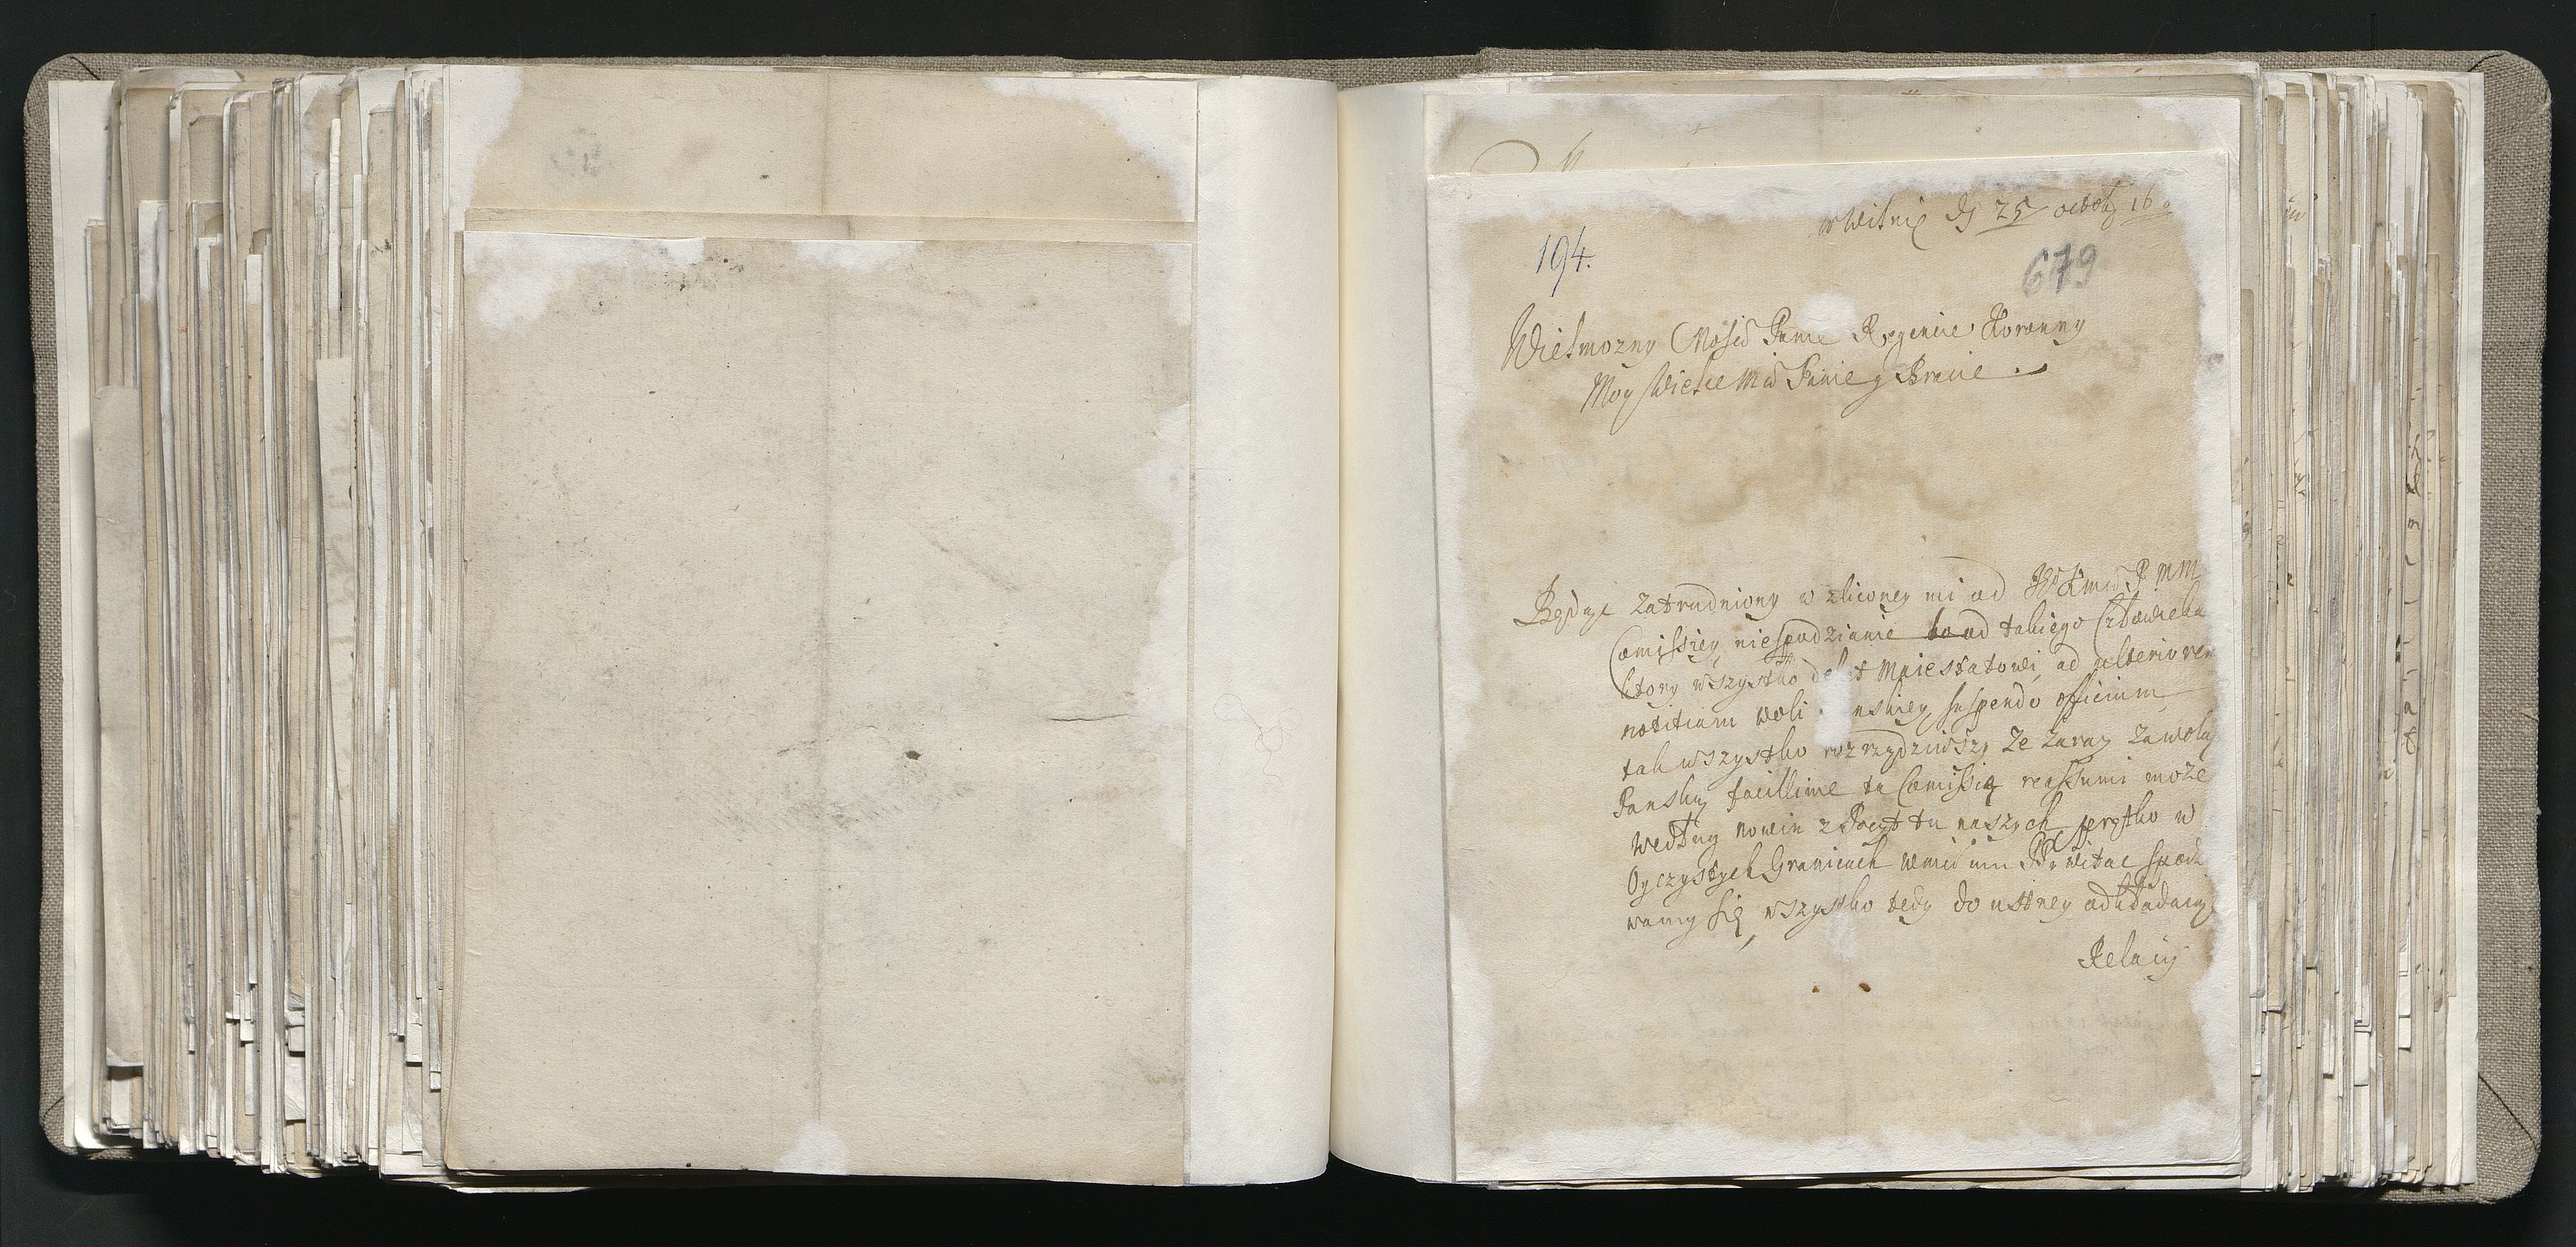 w Wilnie D 25 octobr 16
194.
679
Wielmozny Mosci Panie Regencie Koronny
Moy Wielce Mci Panie y Bracie.
Będąc zatrudniony w zliconey mi od WMMci P MM
Comissiey niespodzianie od takiego Człowieka
ktory wszystko Maiestatowi, ad ulteriorem
notitiam woli nskiey suspendo officium
tak wszystko rozrządziwszy Ze Zaraz Za wolą
Panską facillime ta Comissią reassumi może
Według nowin z Poczt tu naszych prętko w
Oyczystych Granicach wmci um witac spodz
wamy się, wszystko tedy do ustney odkładaiąc
Relacij